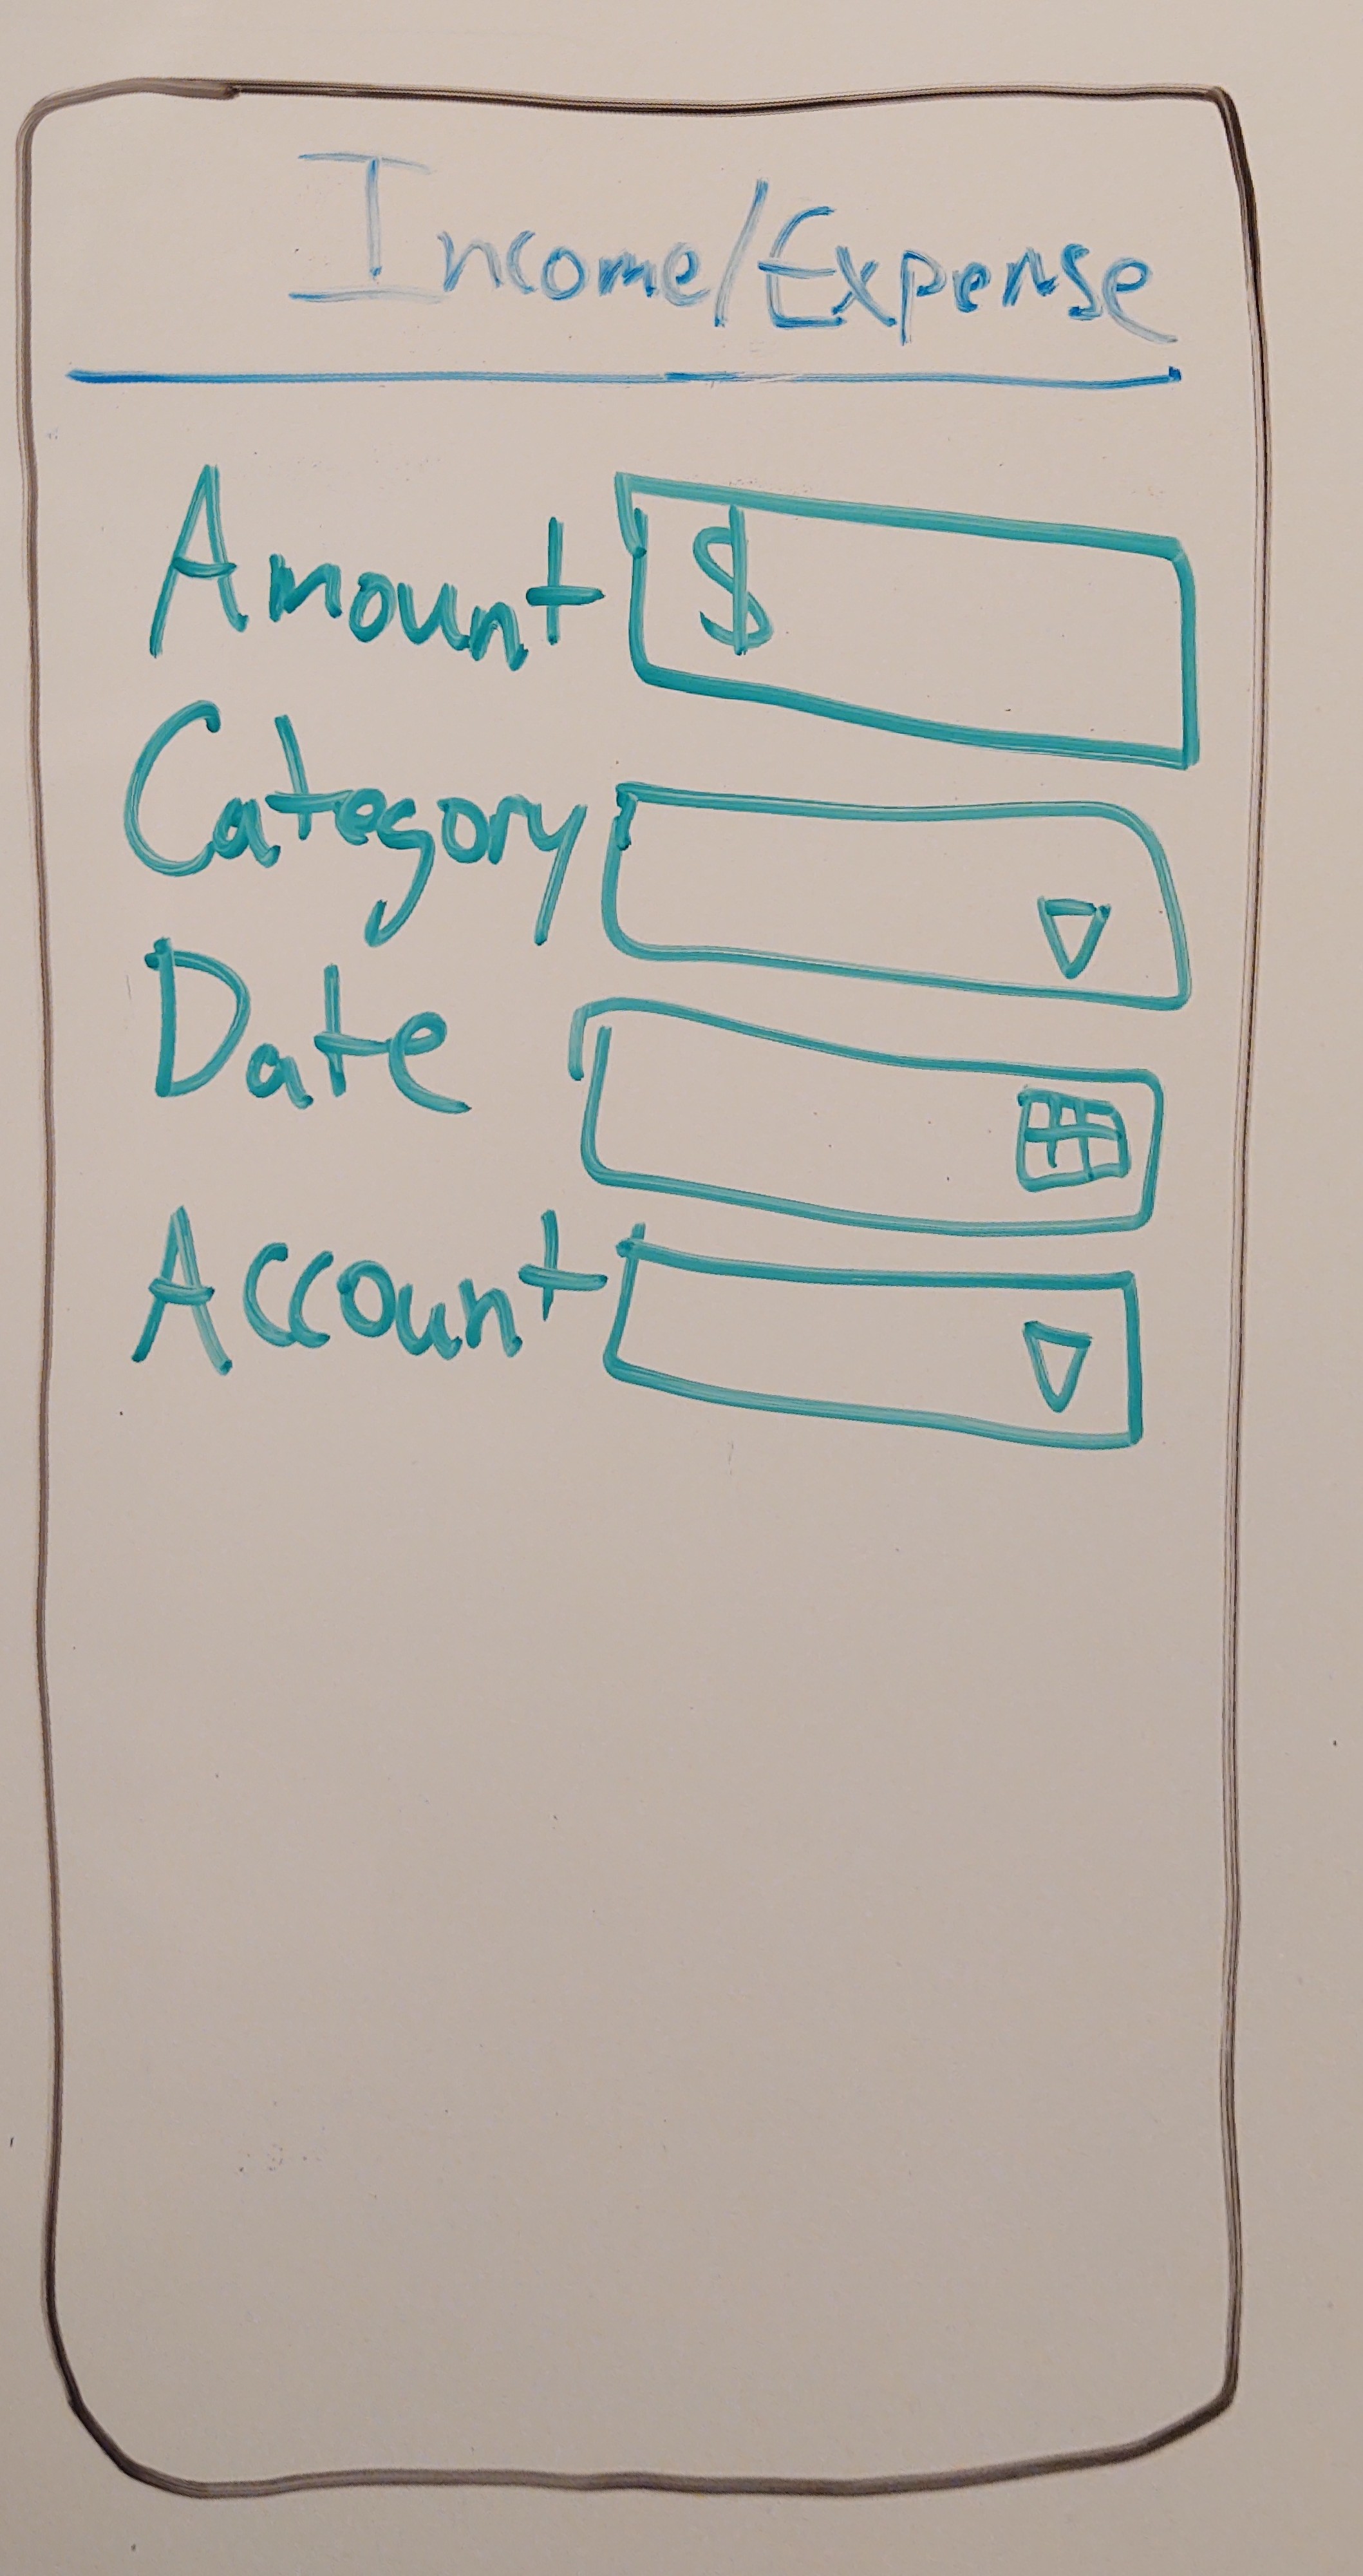 Income/Expense
Amount $
Category
Date
Account